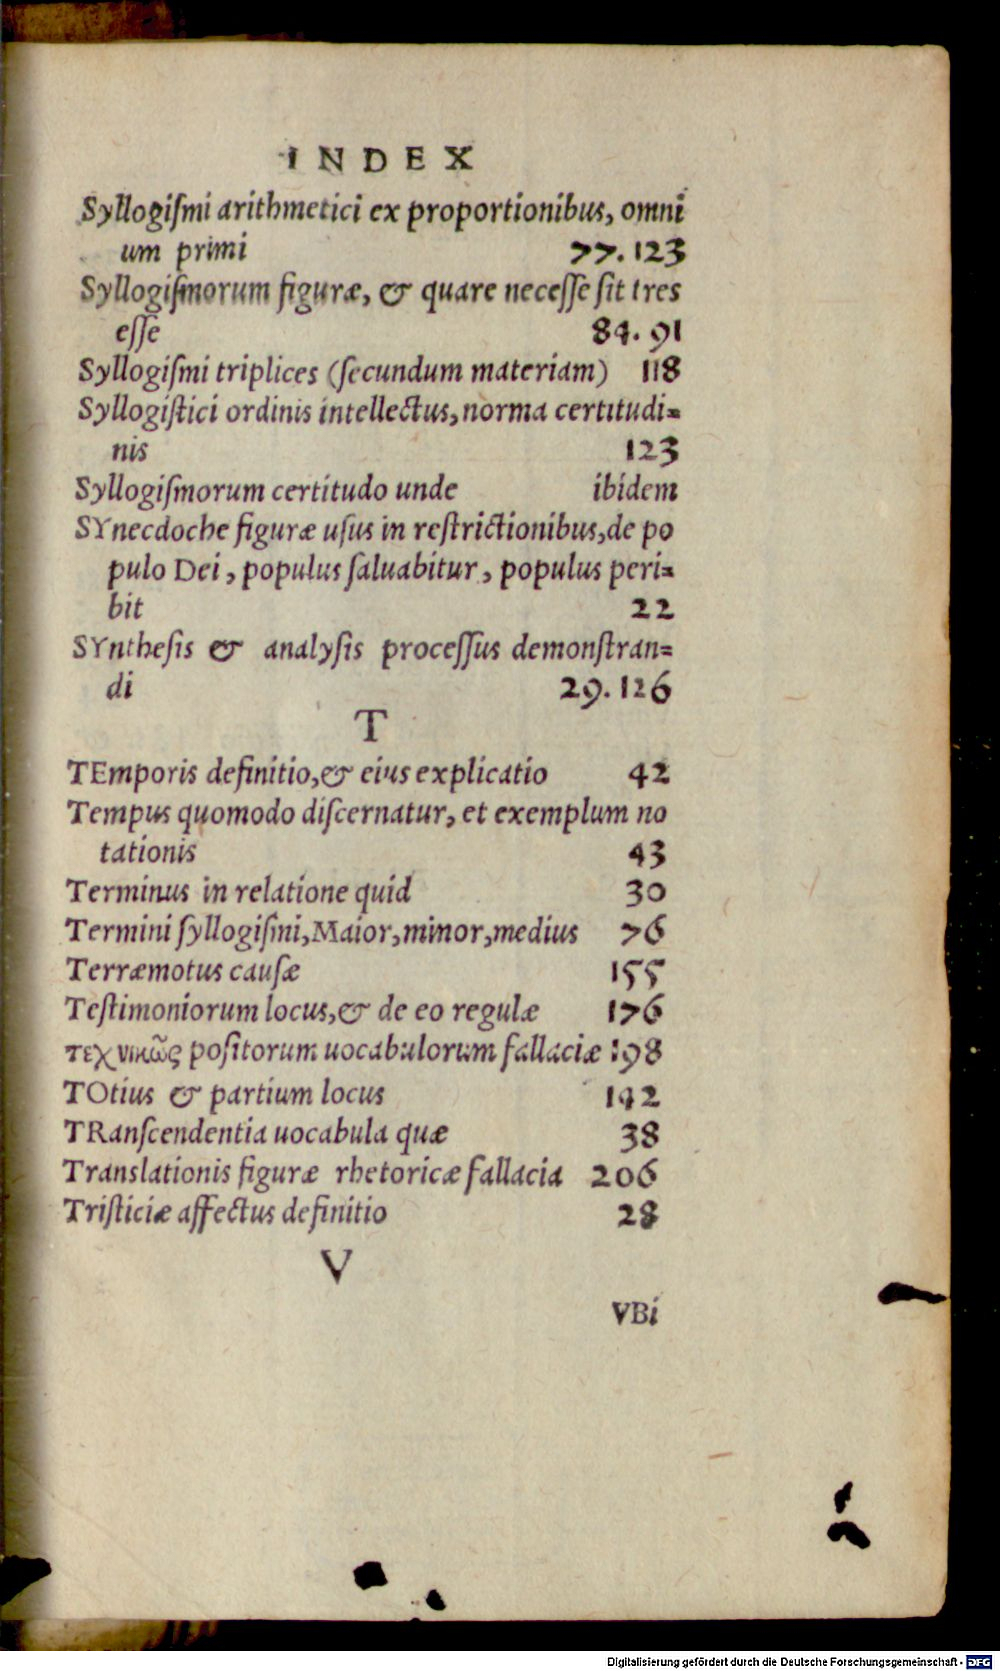 INDEX
Syllogiſmi arithmetici ex proportionibus, omni
um primi 77. 123
Syllogiſmorum figuræ, & quare neceſſe ſit tres
eſſe 84. 91
Syllogiſmi triplices (ſecundum materiam) 118
Syllogiſtici ordinis intellectus, norma certitudi=
nis 123
Syllogiſmorum certitudo unde ibidem
SYnecdoche figuræ uſus in reſtrictionibus, de po
pulo Dei, populus ſaluabitur, populus peri=
bit 22
SYntheſis & analyſis proceſſus demonſtran=
di 29. 126
T
TEmporis definitio, & eius explicatio 42
Tempus quomodo diſcernatur, et exemplum no
tationis 43
Terminus in relatione quid 30
Termini ſyllogiſmi, Maior, minor, medius 76
Terræmotus cauſæ 155
Teſtimoniorum locus, & de eo regulæ 176
τεχνικῶς poſitorum uocabulorum fallaciæ 198
TOtius & partium locus 142
TRanſcendentia uocabula quæ 38
Translationis figuræ rhetoricæ fallacia 206
Triſticiæ affectus definitio 28
V
VBi
Digitalisierung gefördert durch die Deutsche Forschungsgemeinschaft - DFG